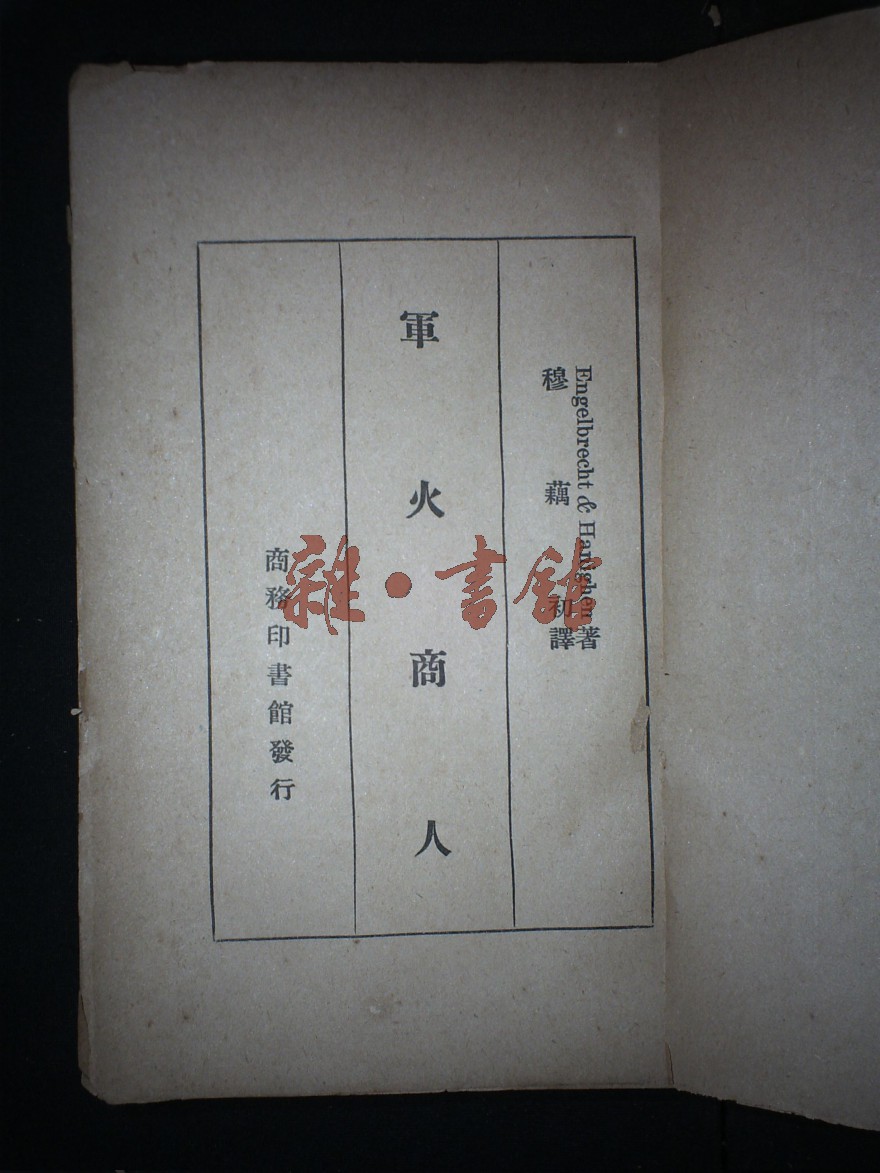 Engelbrecht & Hanighen 著
穆藕初譯
軍火商人
商務印書館發行
雜·書館